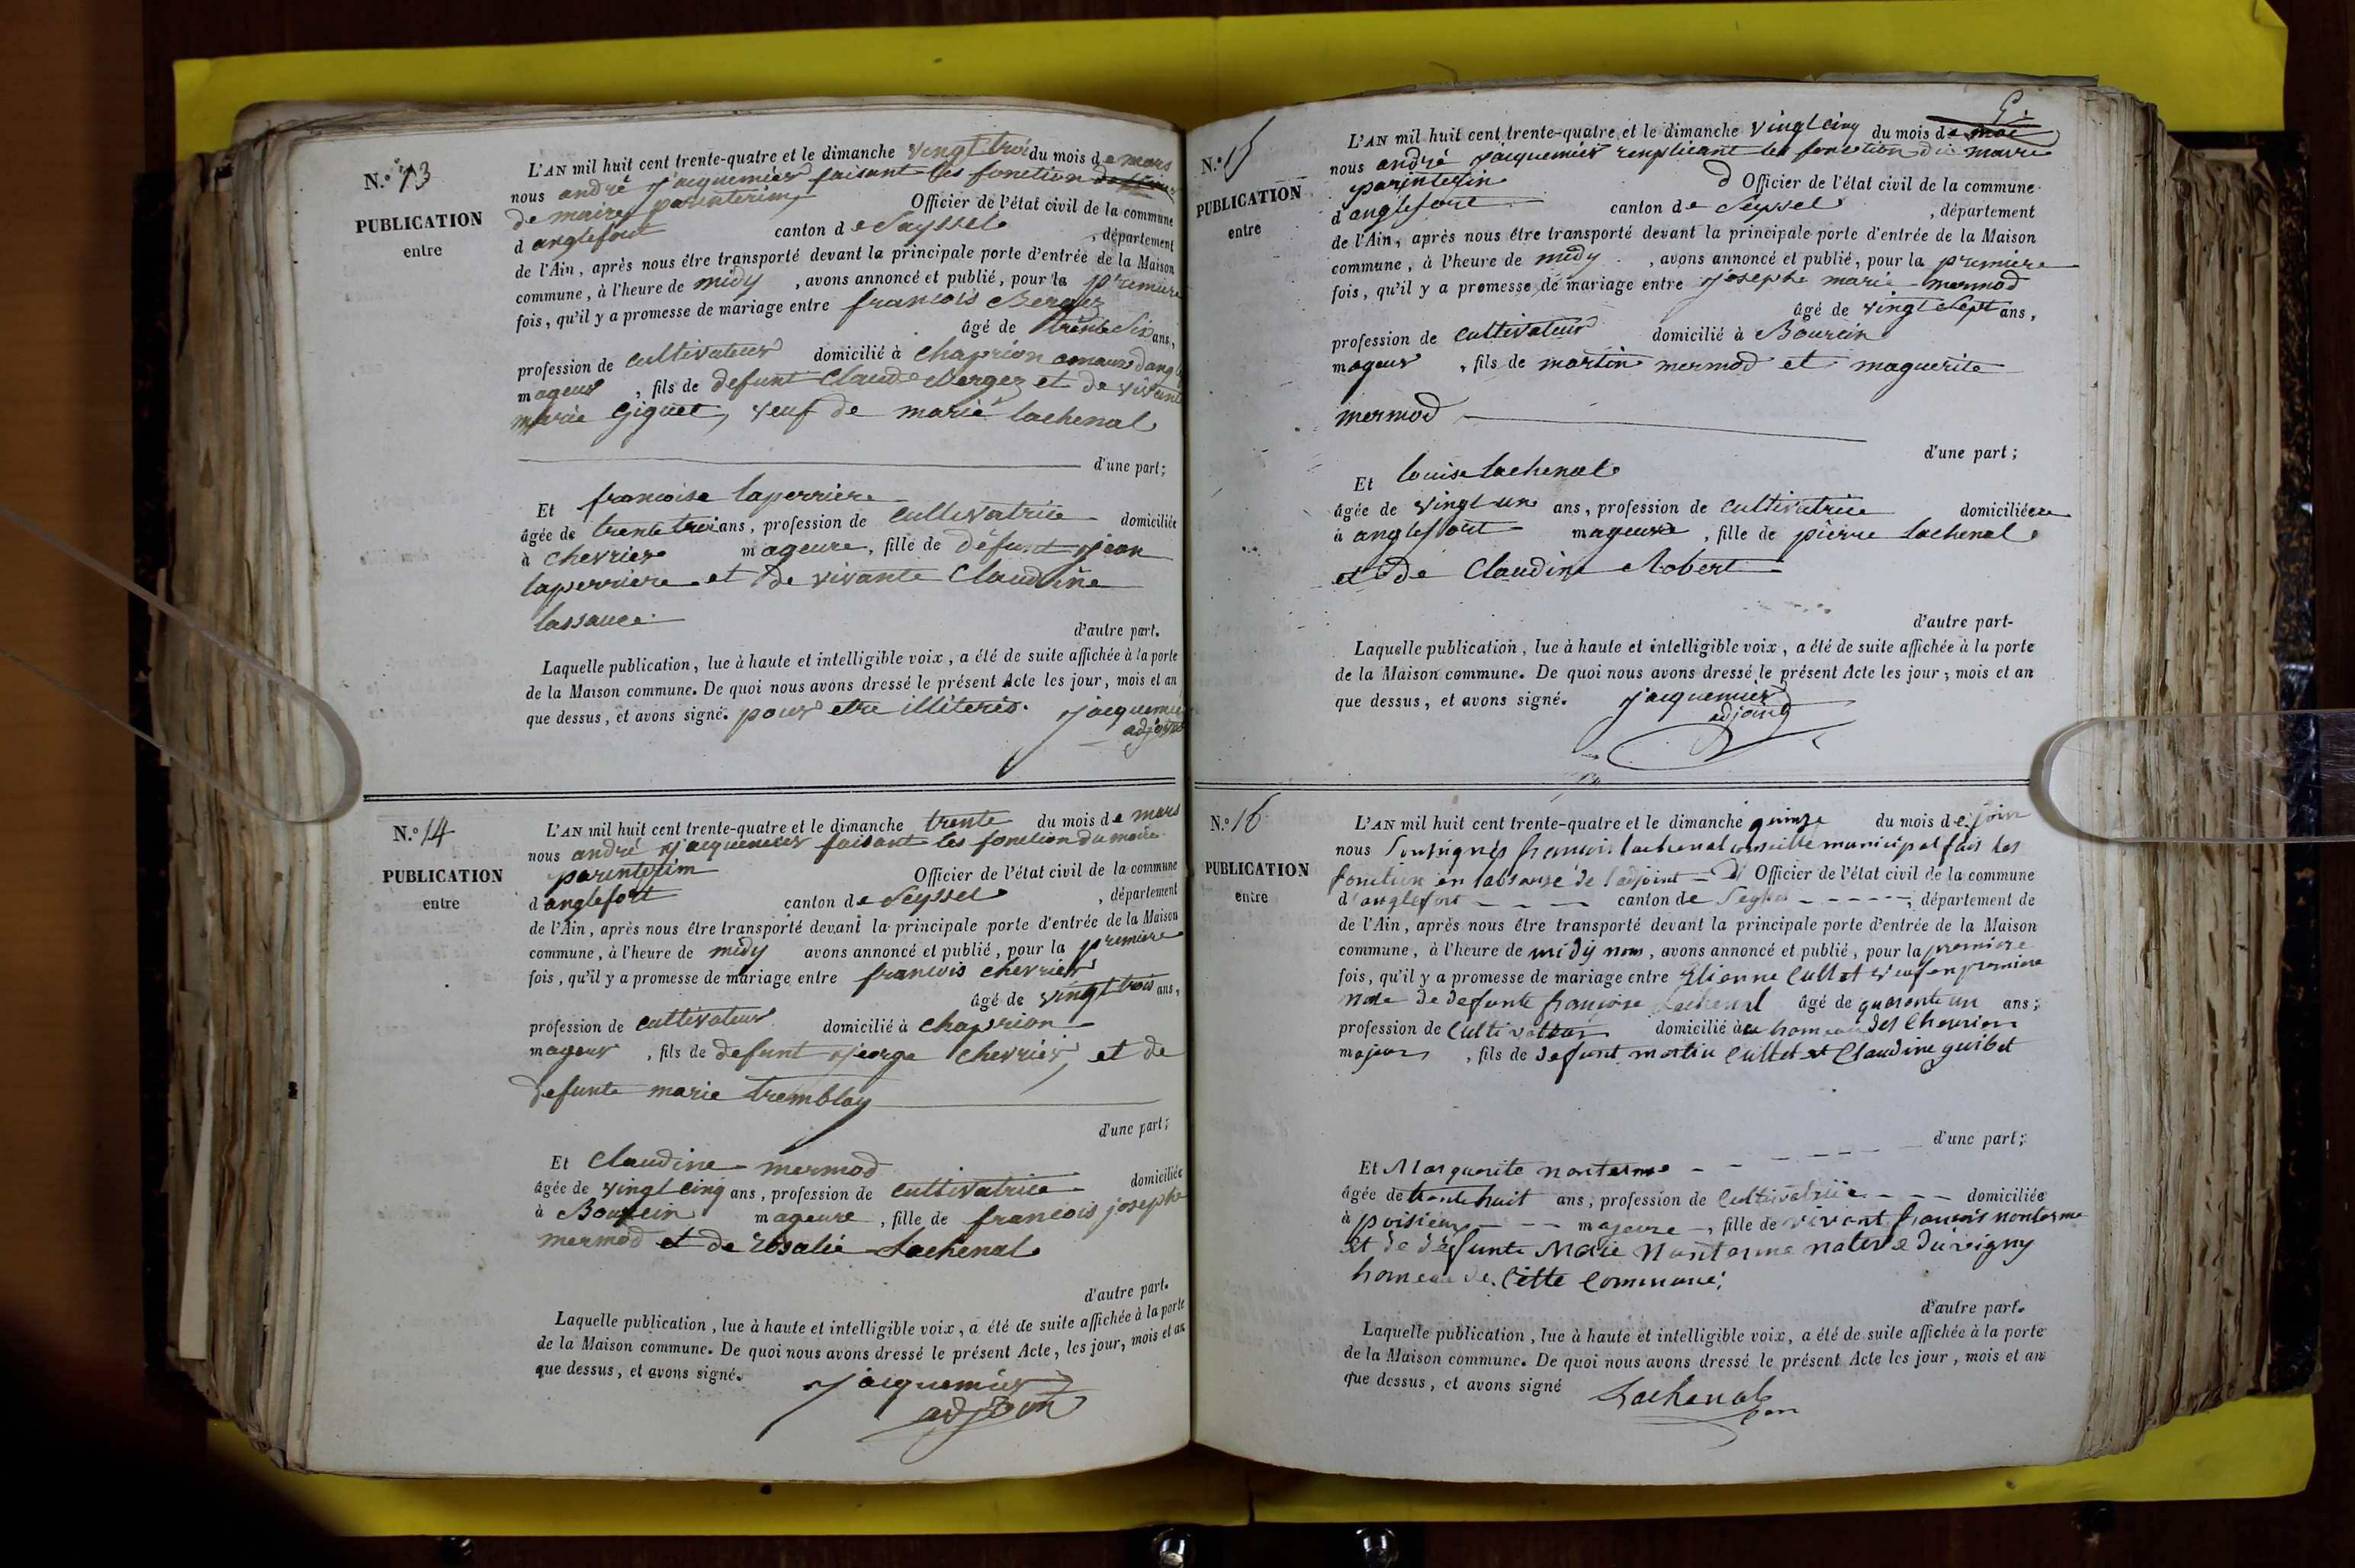 N.º 13
PUBLICATION
entre
L'AN mil huit cent trente-quatre et le dimanche vingt troi du mois de mars
nous andré jacquemier faisant les fonction
de maire parinterim, Officier de l'état civil de la commune
d anglefort canton de Sayssel , département
de l'Ain, après nous être transporté devant la principale porte d'entrée de la Maison
commune, à l'heure de midy , avons annoncé et publié, pour la premiere
fois, qu'il y a promesse de mariage entre francois Bergez
âgé de trente Six ans,
profession de cultivateur domicilié à chaprion amaux dangl
mageur , fils de defunt Claude Bergez et de vivante
marie Giguet, veuf de marie lachenal
d'une part;
Et francoise laperriere
âgée de trente troi ans, profession de cultivatrice domiciliée
à chevrier mageure, fille de défunt jean
laperriere et de vivante Claudine
lassauce
d'autre part.
Laquelle publication, lue à haute et intelligible voix, a été de suite affichée à la porte
de la Maison commune. De quoi nous avons dressé le présent Acte les jour, mois et an
que dessus, et avons signé. pour etre illiteres. jacquemier
adjoint
N.º 14
PUBLICATION
entre
L'AN mil huit cent trente-quatre et le dimanche trente du mois de mars
nous andré jacquemier faisant les fonction du maire
parinterim Officier de l'état civil de la commune
d anglefort canton de Seyssel , département
de l'Ain, après nous être transporté devant la principale porte d'entrée de la Maison
commune, à l'heure de midy avons annoncé et publié, pour la premiere
fois, qu'il y a promesse de mariage entre francois chevrier
âgé de vingt trois ans,
profession de cultivateur domicilié à chaprion
mageur , fils de defunt jeorge chevrier et de
defunte marie tremblay
d'une part;
Et Claudine mermod
âgée de vingt cinq ans, profession de cultivatrice domiciliée
à Bourcin mageure , fille de francois josephe
mermod et de Rosalie Lachenal
d'autre part.
Laquelle publication, lue à haute et intelligible voix, a été de suite affichée à la porte
de la Maison commune. De quoi nous avons dressé le présent Acte, les jour, mois et an
que dessus, et avons signé.
jacquemier
adjoint
N.º 15
PUBLICATION
entre
L'AN mil huit cent trente-quatre et le dimanche vingt cinq du mois de mai
nous andré jacquemier remplicant les fonction du maire
parinterin d Officier de l'état civil de la commune
d anglefort canton de Seyssel , département
de l'Ain, après nous être transporté devant la principale porte d'entrée de la Maison
commune, à l'heure de midy , avons annoncé et publié, pour la premiere
fois, qu'il y a promesse de mariage entre josephe marie mermod
âgé de vingt Sept ans,
profession de cultivateur domicilié à Bourcin
mageur , fils de martin mermod et maguerite
mermod
d'une part;
Et louise lachenal
âgée de vingt un ans, profession de cultivatrice domiciliée
à anglefort mageure , fille de pierre lachenal
et de Claudine Robert
d'autre part-
Laquelle publication, lue à haute et intelligible voix, a été de suite affichée à la porte
de la Maison commune. De quoi nous avons dressé le présent Acte les jour, mois et an
que dessus, et avons signé. jacquemier
adjoint
N.º 16
PUBLICATION
entre
L'AN mil huit cent trente-quatre et le dimanche quinze du mois de join
nous Soutsignés francois lachenal conseille municipal fais les
fonction en labsanse de ladjoint - d Officier de l'état civil de la commune
d'anglefort canton de , département de
de l'Ain, après nous être transporté devant la principale porte d'entrée de la Maison
commune, à l'heure de midy , avons annoncé et publié, pour la premiere
fois, qu'il y a promesse de mariage entre Etienne Cullet veuf en premiere
de defunte francoise Lachenal âgé de quarante un ans;
profession de Cultivateur domicilié au homeau des Chevrier
majeur , fils de defunt martin Cullet et Claudine guibet
d'une part;
Et Marguerite nanterme
âgée de trente huit ans, profession de Cultivatrice domiciliée
à poisieux majeure , fille de vivant francois nanterme
Et de défunte Marie Nanterme
homeau de Cette Commune;
d'autre part.
Laquelle publication, lue à haute et intelligible voix, a été de suite affichée à la porte
de la Maison commune. De quoi nous avons dressé le présent Acte les jour, mois et an
que dessus, et avons signé Lachenal